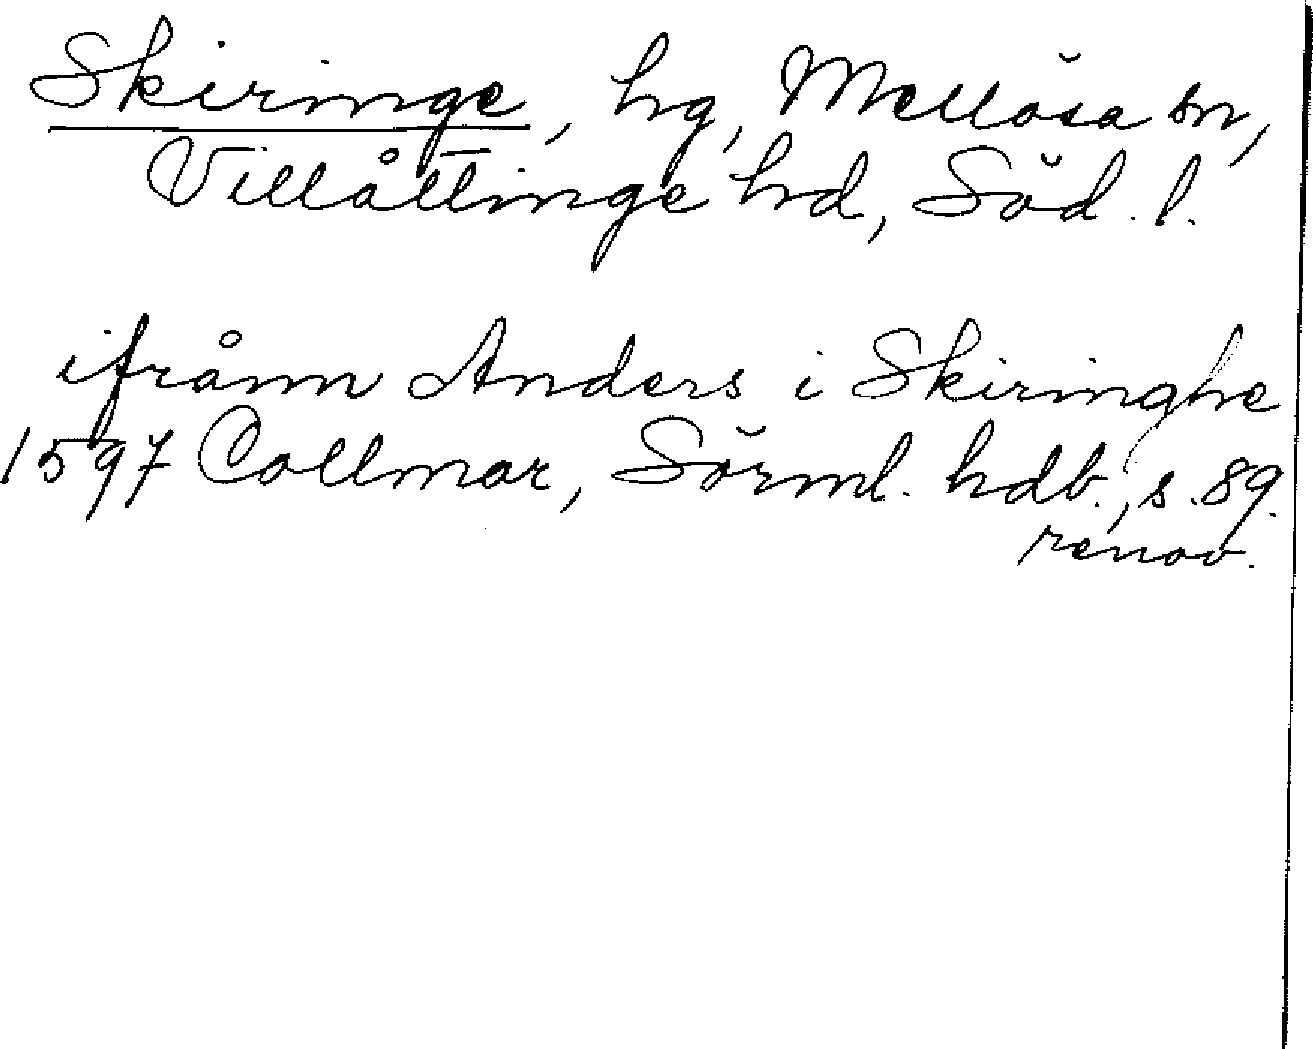 Skiringe, hg, Mellösa sn,
Villåttinge hd, Söd. l.
ifrånn Anders i Skiringhe
1597 Collmar, Sörml. hdb., s. 89.
renov.